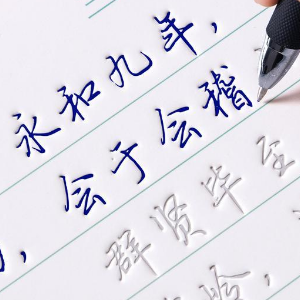 永和九年，
会于会稽
，群贤毕至